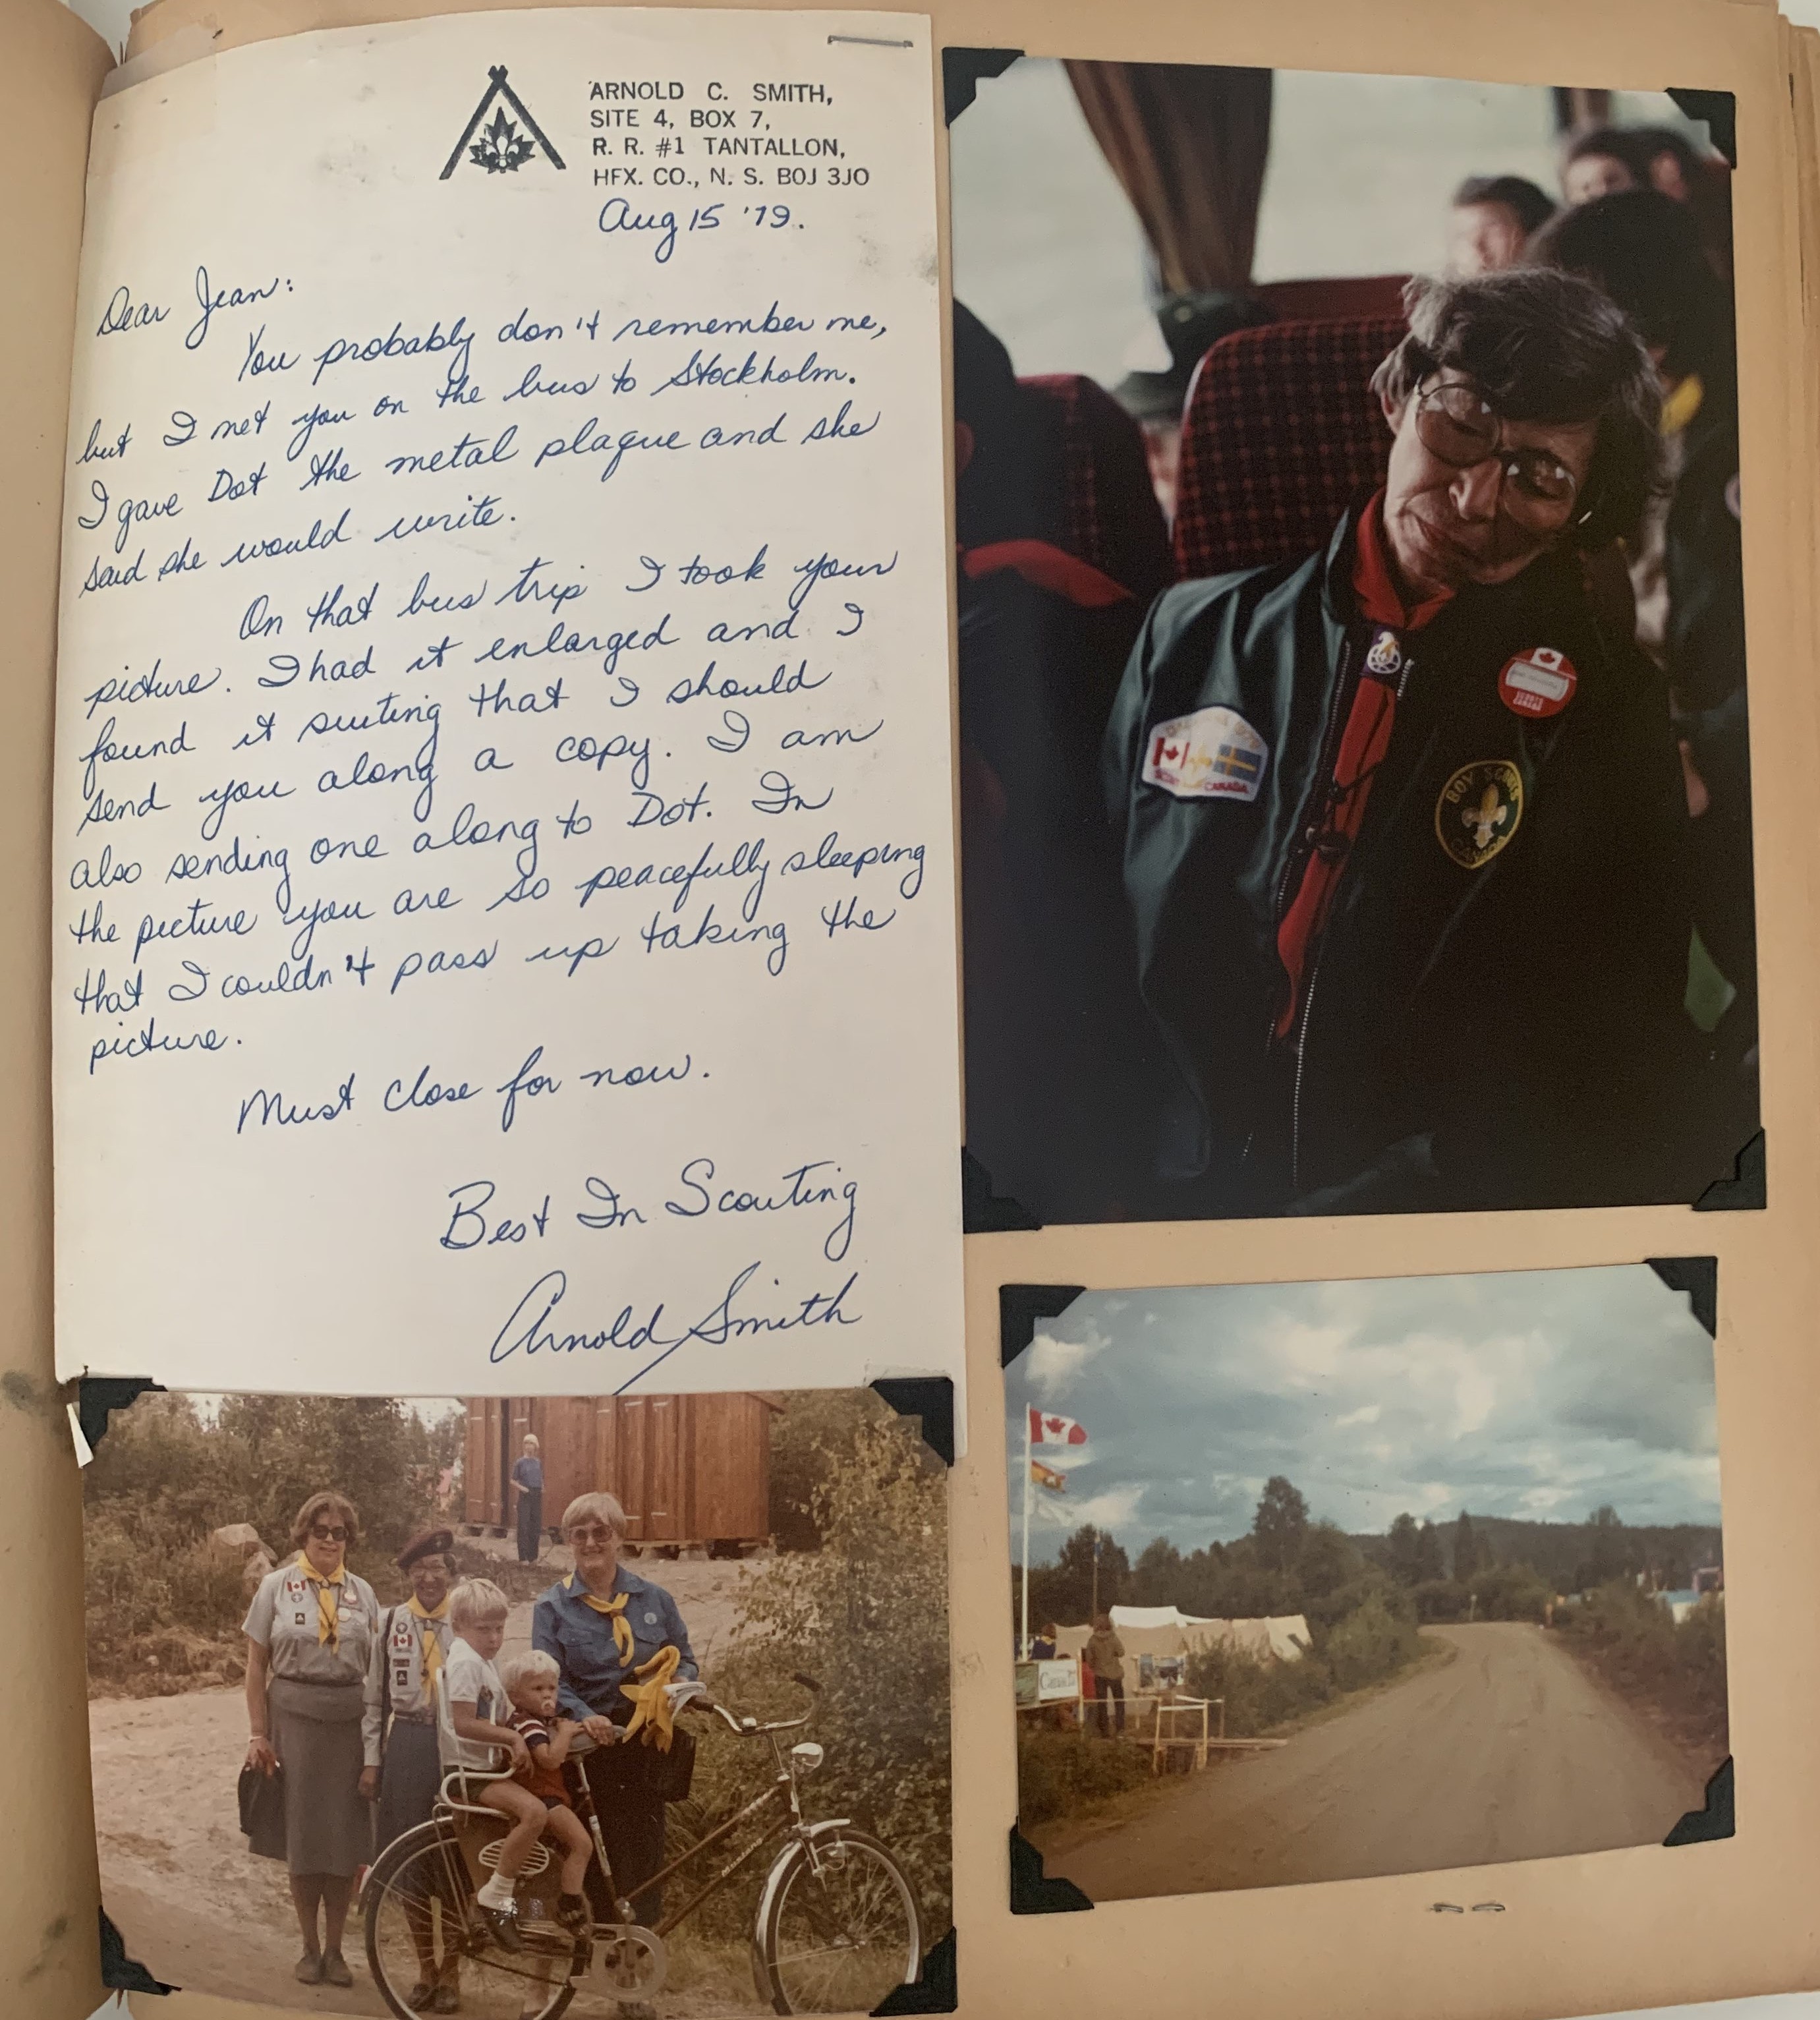 ARNOLD C. SMITH,
SITE 4, BOX 7,
R. R. #1 TANTALLON,
HFX. CO., N. S. BOJ 3JO
Aug 15 '79.
Dear Jean:
You probably don't remember me,
but I met you on the bus to Stockholm.
I gave Dot the metal plaque and she
said she would write.
On that bus trip I took your
picture. I had it enlarged and I
found it suiting that I should
send you along a copy. I am
also sending one along to Dot. In
the picture you are so peacefully sleeping
that I couldn't pass up taking the
picture.
Must close for now.
Best In Scouting
Arnold Smith
CANADA
BOY SCOUTS
CANADA
Canada